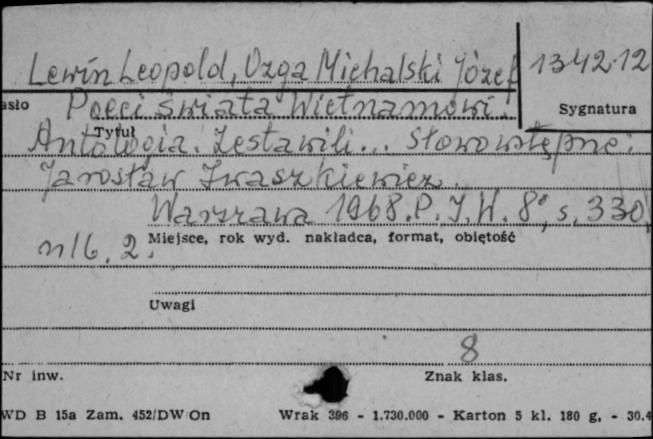 Lewin Leopold, Ozga Michalski Józef
1342.12
asło
Poeci świata Wietnamowi.
Sygnatura
Tytuł
Antologia. Zestawili... Słowo wstępne:
Jarosław Iwaszkiewicz.
Warszawa 1968. P.I.W. 8°, s. 330,
nlb. 2.
Miejsce, rok wyd. nakładca, format, objętość
Uwagi
8
Nr inw.
Znak klas.
WD B 15a Zam. 452/DW On
Wrak 396 - 1.730.000 - Karton 5 kl. 180 g. - 30.4